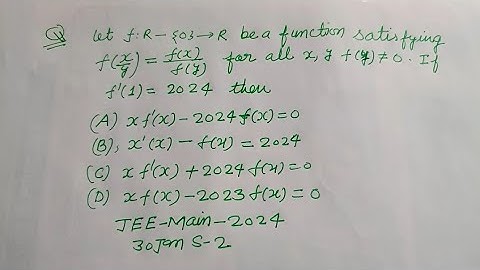 Q let f: R - {0} → R be a function satisfying
f(x/y) = f(x)/f(y) for all x, y f(y) ≠ 0. If
f'(1) = 2024 then
(A) x f'(x) - 2024 f(x) = 0
(B), x'(x) - f(x) = 2024
(C) x f'(x) + 2024 f(x) = 0
(D) x f(x) - 2023 f(x) = 0
JEE-Main-2024
30 Jan S-2